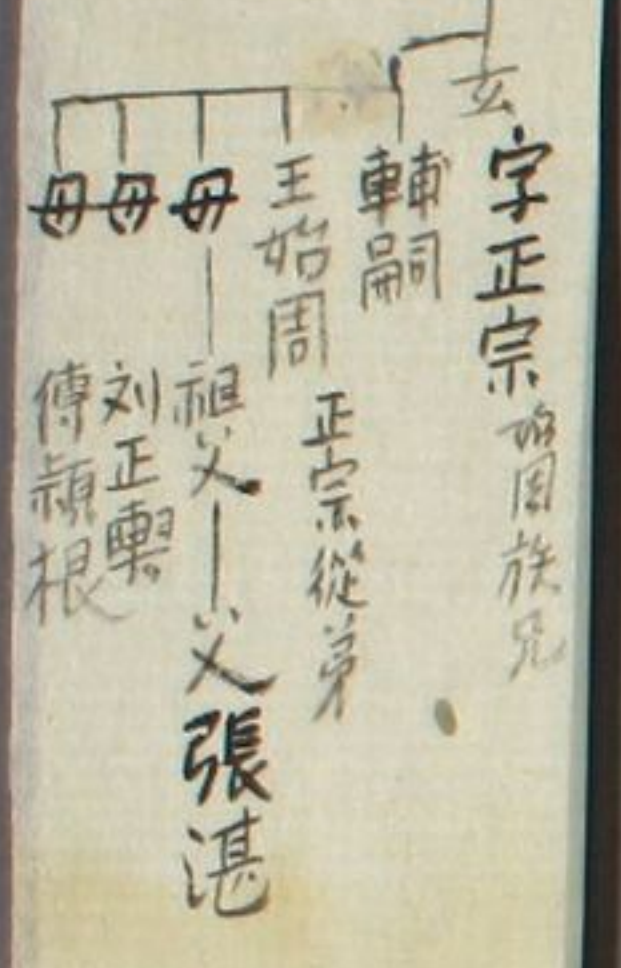 玄字正宗始周族兄
輔嗣
王始周正宗從弟
母祖父父張湛
母刘正輿
母傅頴根